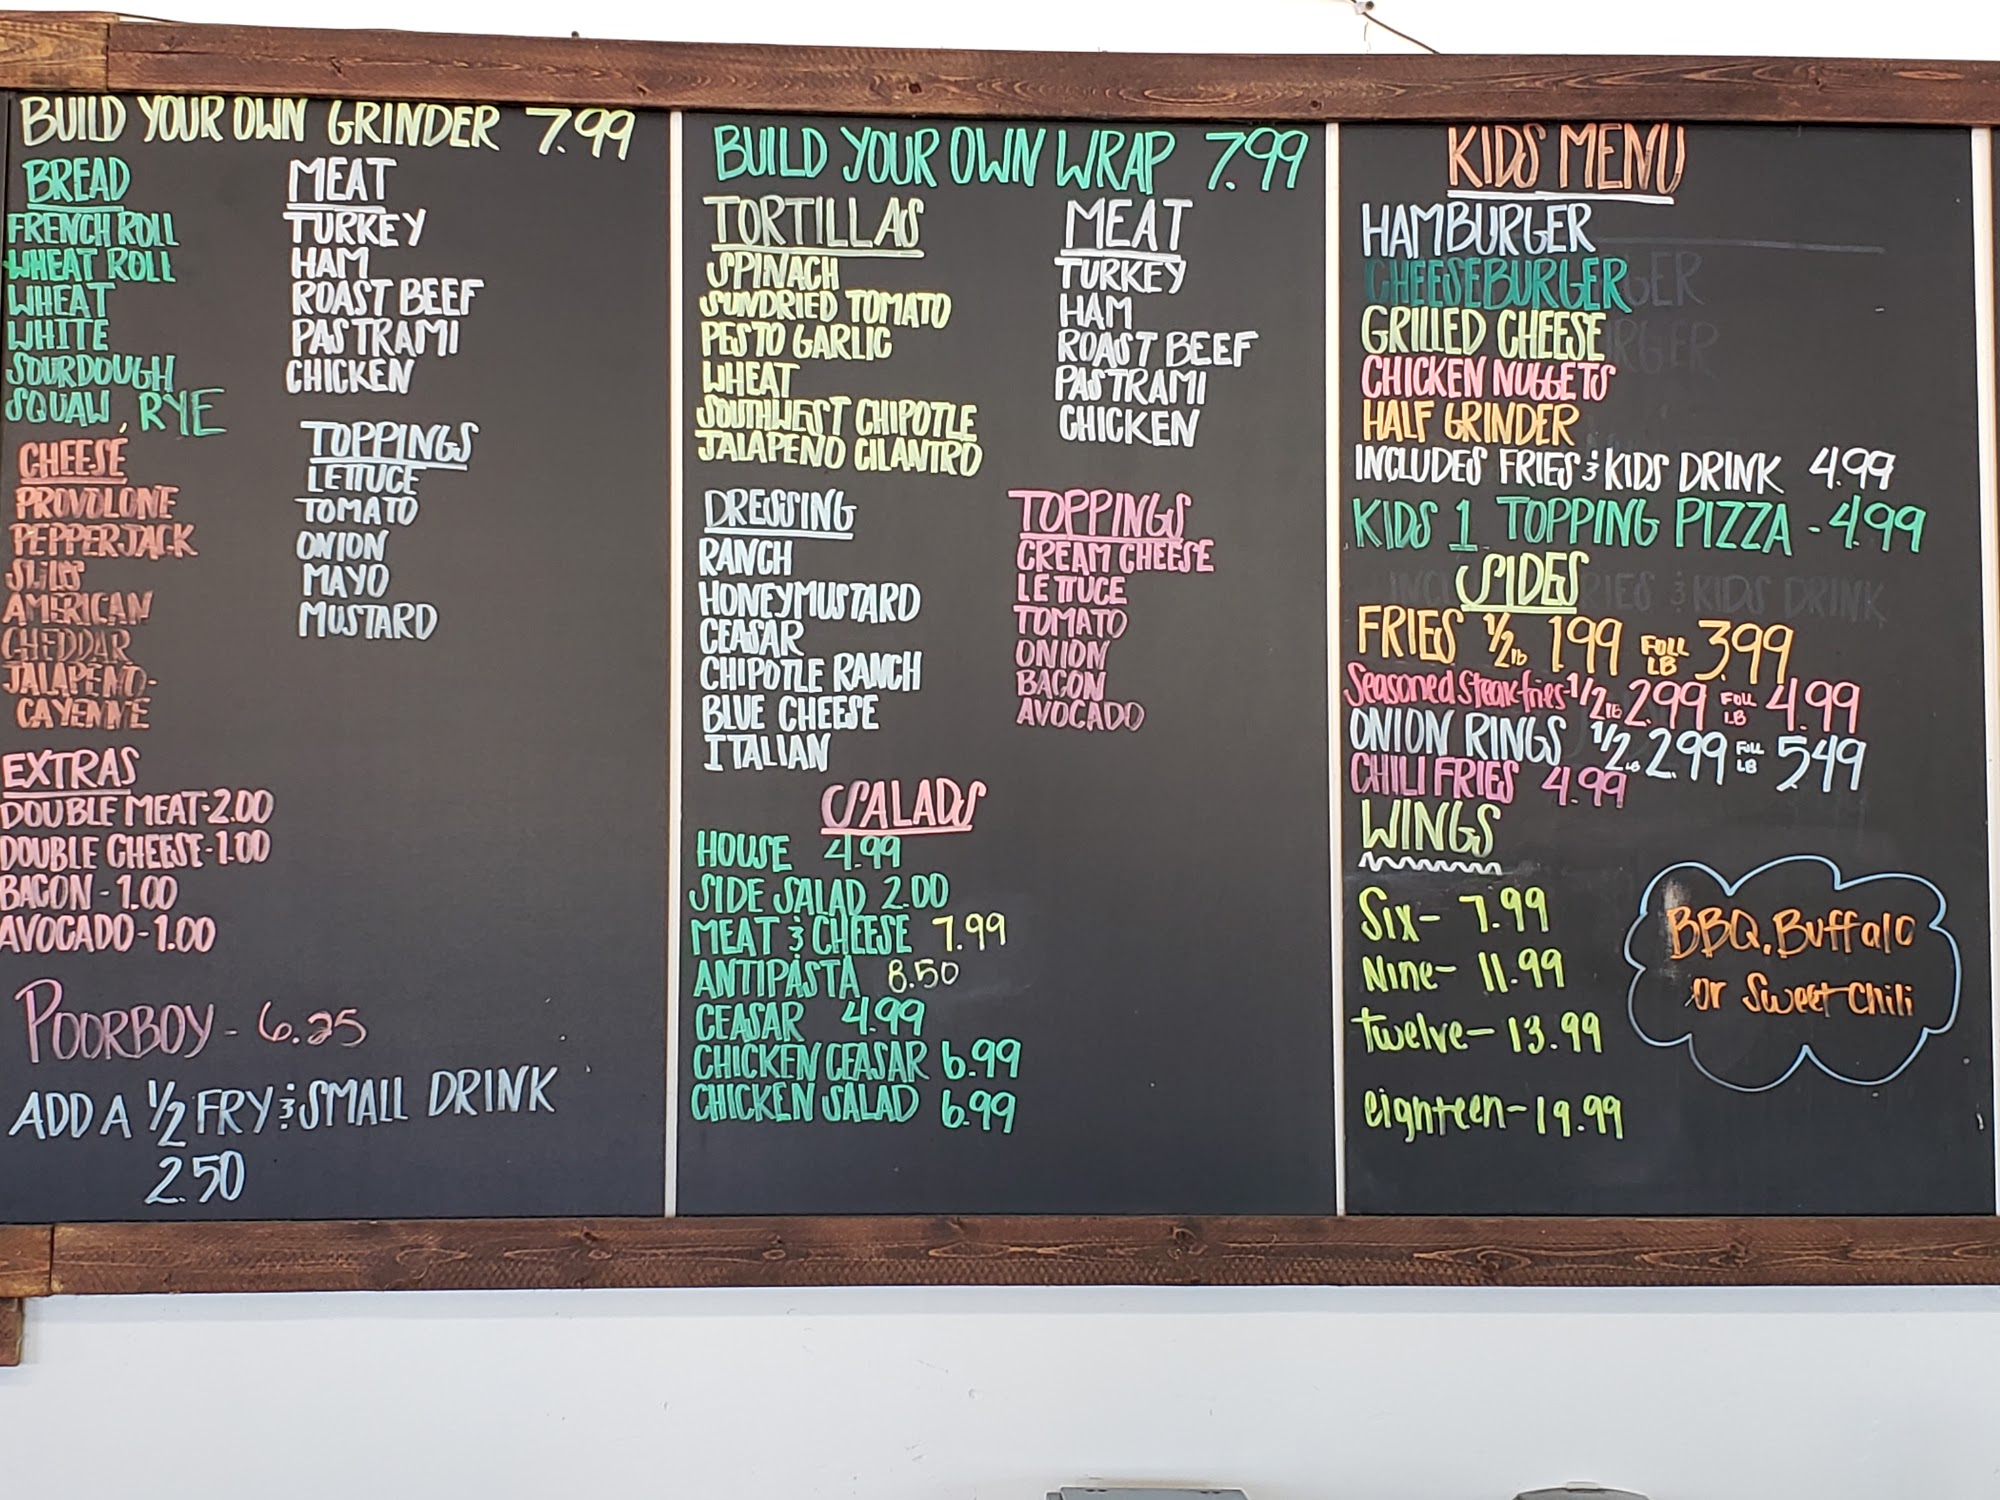 BUILD YOUR OWN GRINDER 7.99
BREAD
FRENCH ROLL
WHEAT ROLL
WHEAT
WHITE
SOURDOUGH
SQUAW, RYE
CHEESE
PROVOLONE
PEPPERJACK
SWISS
AMERICAN
CHEDDAR
JALAPENO-
CAYENNE
MEAT
TURKEY
HAM
ROAST BEEF
PASTRAMI
CHICKEN
TOPPINGS
LETTUCE
TOMATO
ONION
MAYO
MUSTARD
EXTRAS
DOUBLE MEAT-2.00
DOUBLE CHEESE-1.00
BACON-1.00
AVOCADO-1.00
POORBOY - 6.25
ADD A 1/2 FRY & SMALL DRINK
2.50
BUILD YOUR OWN WRAP 7.99
TORTILLAS
SPINACH
SUNDRIED TOMATO
PESTO GARLIC
WHEAT
SOUTHWEST CHIPOTLE
JALAPENO CILANTRO
MEAT
TURKEY
HAM
ROAST BEEF
PASTRAMI
CHICKEN
DRESSING
RANCH
HONEYMUSTARD
CEASAR
CHIPOTLE RANCH
BLUE CHEESE
ITALIAN
TOPPINGS
CREAM CHEESE
LETTUCE
TOMATO
ONION
BACON
AVOCADO
SALADS
HOUSE 4.99
SIDE SALAD 2.00
MEAT & CHEESE 7.99
ANTIPASTA 8.50
CEASAR 4.99
CHICKEN CEASAR 6.99
CHICKEN SALAD 6.99
KIDS MENU
HAMBURGER
CHEESEBURGER
GRILLED CHEESE
CHICKEN NUGGETS
HALF GRINDER
INCLUDES FRIES & KIDS DRINK 4.99
KIDS 1 TOPPING PIZZA - 4.99
SIDES
FRIES 1/2 lb 1.99 FULL LB 3.99
Seasoned steak fries-1/2 LB 2.99 FULL LB 4.99
ONION RINGS 1/2 LB 2.99 FULL LB 5.49
CHILI FRIES 4.99
WINGS
Six- 7.99
Nine- 11.99
twelve- 13.99
eighteen- 19.99
BBQ, Buffalo
or Sweet Chili